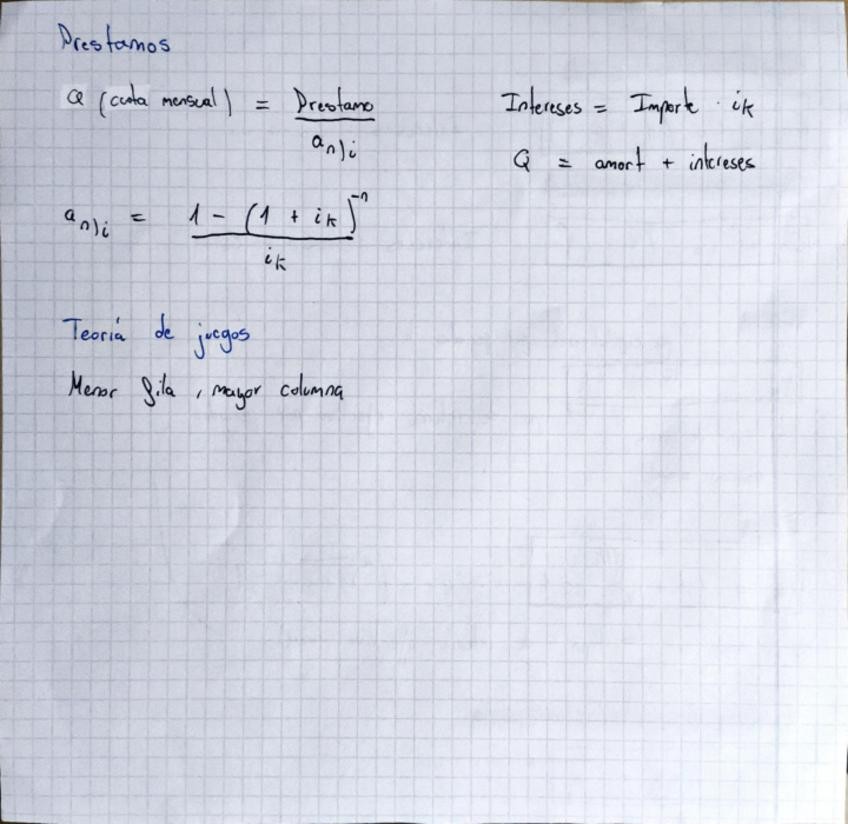 Prestamos
Q (cuota mensual) = Prestamo / a n)i
Intereses = Importe · ik
Q = amort + intereses
a n)i = 1 - (1 + ik)^-n / ik
Teoría de juegos
Menor fila, mayor columna